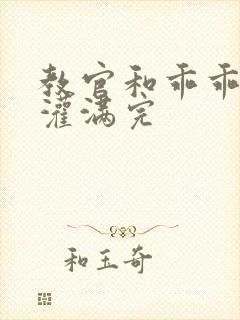 教官和乖乖
灌满完
和玉奇